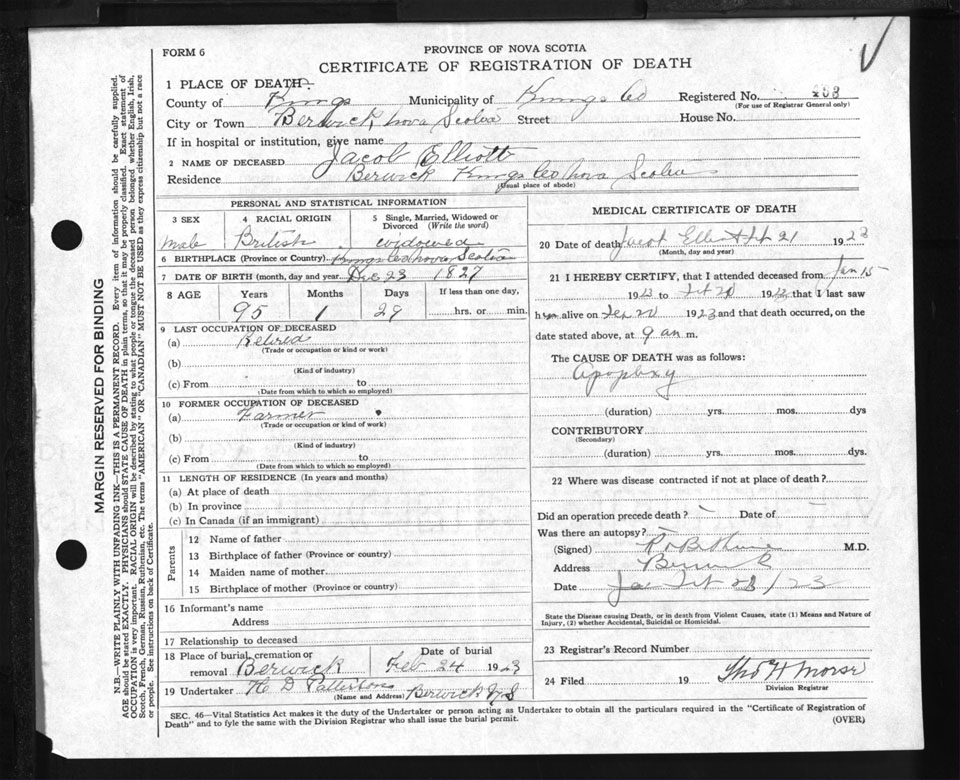 FORM 6
PROVINCE OF NOVA SCOTIA
CERTIFICATE OF REGISTRATION OF DEATH
1 PLACE OF DEATH:
County of Kings Municipality of Kings Co Registered No. 208
(For use of Registrar General only)
City or Town Berwick nova Scotia Street House No.
If in hospital or institution, give name
2 NAME OF DECEASED Jacob Elliott
Residence Berwick Kings Co nova Scotia
(Usual place of abode)
PERSONAL AND STATISTICAL INFORMATION
3 SEX 4 RACIAL ORIGIN 5 Single, Married, Widowed or
Divorced (Write the word)
male British widowed
6 BIRTHPLACE (Province or Country) Kings Co nova Scotia
7 DATE OF BIRTH (month, day and year) Dec 23 1827
8 AGE Years Months Days If less than one day,
95 1 29 hrs. or min.
9 LAST OCCUPATION OF DECEASED
(a) Retired
(Trade or occupation or kind of work)
(b)
(Kind of industry)
(c) From to
(Date from which to which so employed)
10 FORMER OCCUPATION OF DECEASED
(a) Farmer
(Trade or occupation or kind of work)
(b)
(Kind of industry)
(c) From to
(Date from which to which so employed)
11 LENGTH OF RESIDENCE (In years and months)
(a) At place of death
(b) In province
(c) In Canada (if an immigrant)
Parents
12 Name of father
13 Birthplace of father (Province or country)
14 Maiden name of mother
15 Birthplace of mother (Province or country)
16 Informant's name
Address
17 Relationship to deceased
18 Place of burial, cremation or Date of burial
removal Berwick Feb 24 1923
19 Undertaker H D Patterson Berwick N S
(Name and Address)
MEDICAL CERTIFICATE OF DEATH
20 Date of death Jacob Elliott 21 1923
(Month, day and year)
21 I HEREBY CERTIFY, that I attended deceased from Jan 15
1923 to Feb 20 1923 that I last saw
him alive on Feb 20 1923 and that death occurred, on the
date stated above, at 9 am m.
The CAUSE OF DEATH was as follows:
Apoplexy
(duration) yrs. mos. dys
CONTRIBUTORY
(Secondary)
(duration) yrs. mos. dys.
22 Where was disease contracted if not at place of death?
Did an operation precede death? Date of
Was there an autopsy?
(Signed) M.D.
Address Berwick
Date 23
State the Disease causing Death, or in death from Violent Causes, state (1) Means and Nature of
Injury, (2) whether Accidental, Suicidal or Homicidal.
23 Registrar's Record Number
24 Filed 19 Thos H Morse
Division Registrar
SEC. 46—Vital Statistics Act makes it the duty of the Undertaker or person acting as Undertaker to obtain all the particulars required in the "Certificate of Registration of
Death" and to fyle the same with the Division Registrar who shall issue the burial permit.
(OVER)
MARGIN RESERVED FOR BINDING
N.B.—WRITE PLAINLY WITH UNFADING INK—THIS IS A PERMANENT RECORD. Every item of information should be carefully supplied.
AGE should be stated EXACTLY. PHYSICIANS should STATE CAUSE OF DEATH in plain terms, so that it may be properly classified. Exact statement of
OCCUPATION is very important. RACIAL ORIGIN will be described by stating to what people or tongue the deceased person belonged whether English, Irish,
Scotch, French, German, Russian, Ruthenian, etc. The terms "AMERICAN" OR "CANADIAN" MUST NOT BE USED as they express citizenship but not a race
or people. See instructions on back of Certificate.